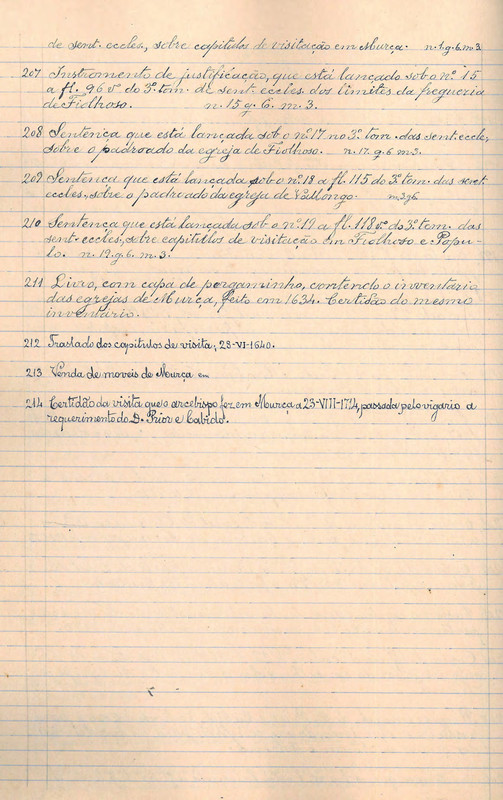 de sent. eccles., sobre capitulos de visitação em Murça. n. 1. g. 6. m. 3.
207 Instromento de justificação, que está lançado sob o nº. 15
a fl. 96 vº do 3º. tom. de sent. eccles. dos limites da freguesia
de Fiolhoso. n. 15 g. 6. m. 3.
208 Sentença que está lançada sob o nº. 17 no 3º. tom. das sent. eccles,
sobre o padroado da egreja de Fiolhoso. n. 17. g. 6 m. 3.
209 Sentença que está lançada sob o nº. 18 a fl. 115 do 3º. tom. das sent.
eccles., sobre o padroado da egreja de Vallongo.
210 Sentença que está lançada sob o nº. 19 a fl. 118 vº. do 3º. tom. das
sent. eccles., sobre capitulos de visitação em Fiolhoso e Popu-
lo. n. 19. g. 6. m. 3.
211 Livro, com capa de pergaminho, contendo o inventário
das egrejas de Murça, feito em 1634. Certidão do mesmo
inventário.
212 Traslado dos capitulos de visita, 28-VI-1640.
213 Venda de moveis de Mourça em
214 Certidão da visita que o arcebispo fez em Mourça a 23-VIII-1714, passada pelo vigario a
requerimento do D. Prior e Cabido.